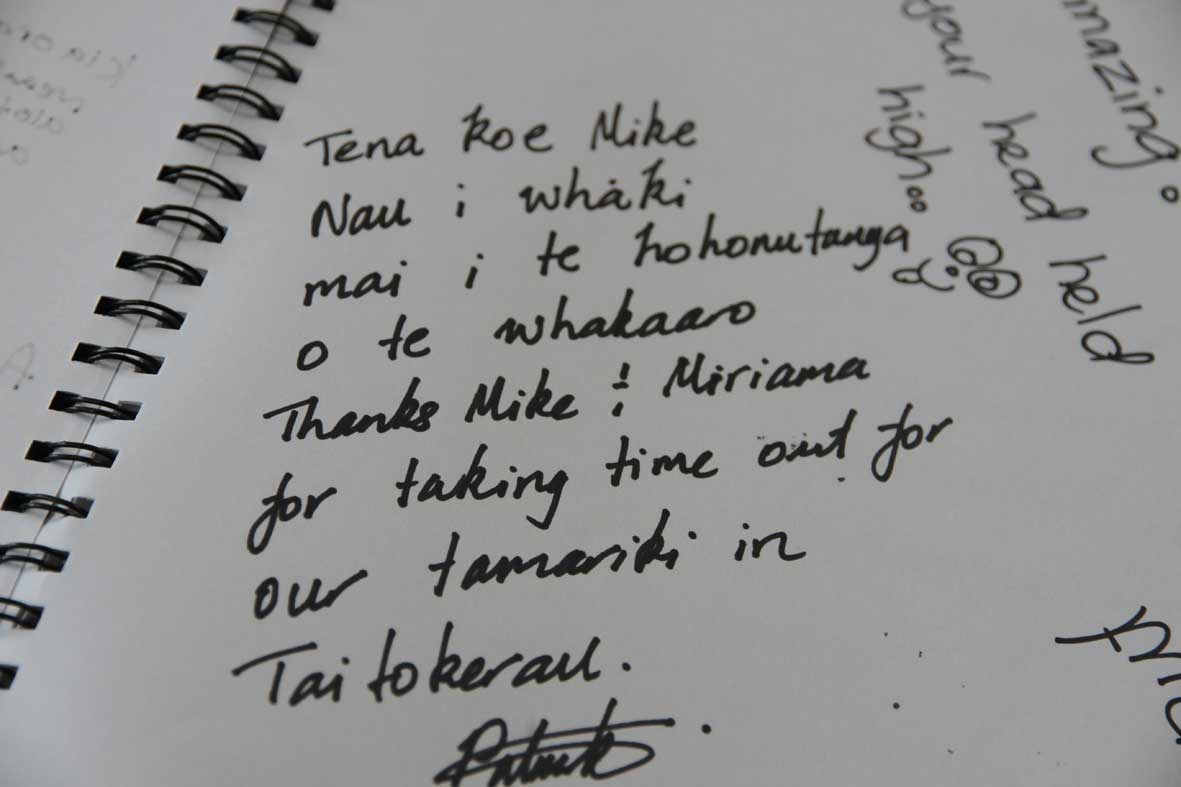 Tena koe Mike
Nau i whāki
mai i te hohonutanga
o te whakaaro
Thanks Mike & Miriama
for taking time out for
our tamariki in
Taitokerau.
mazing.
your head held
high..